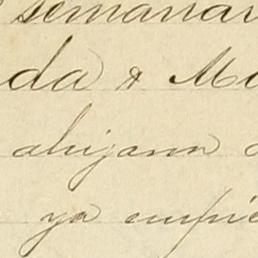 semanar
da & Mu
ahijann
ya empie